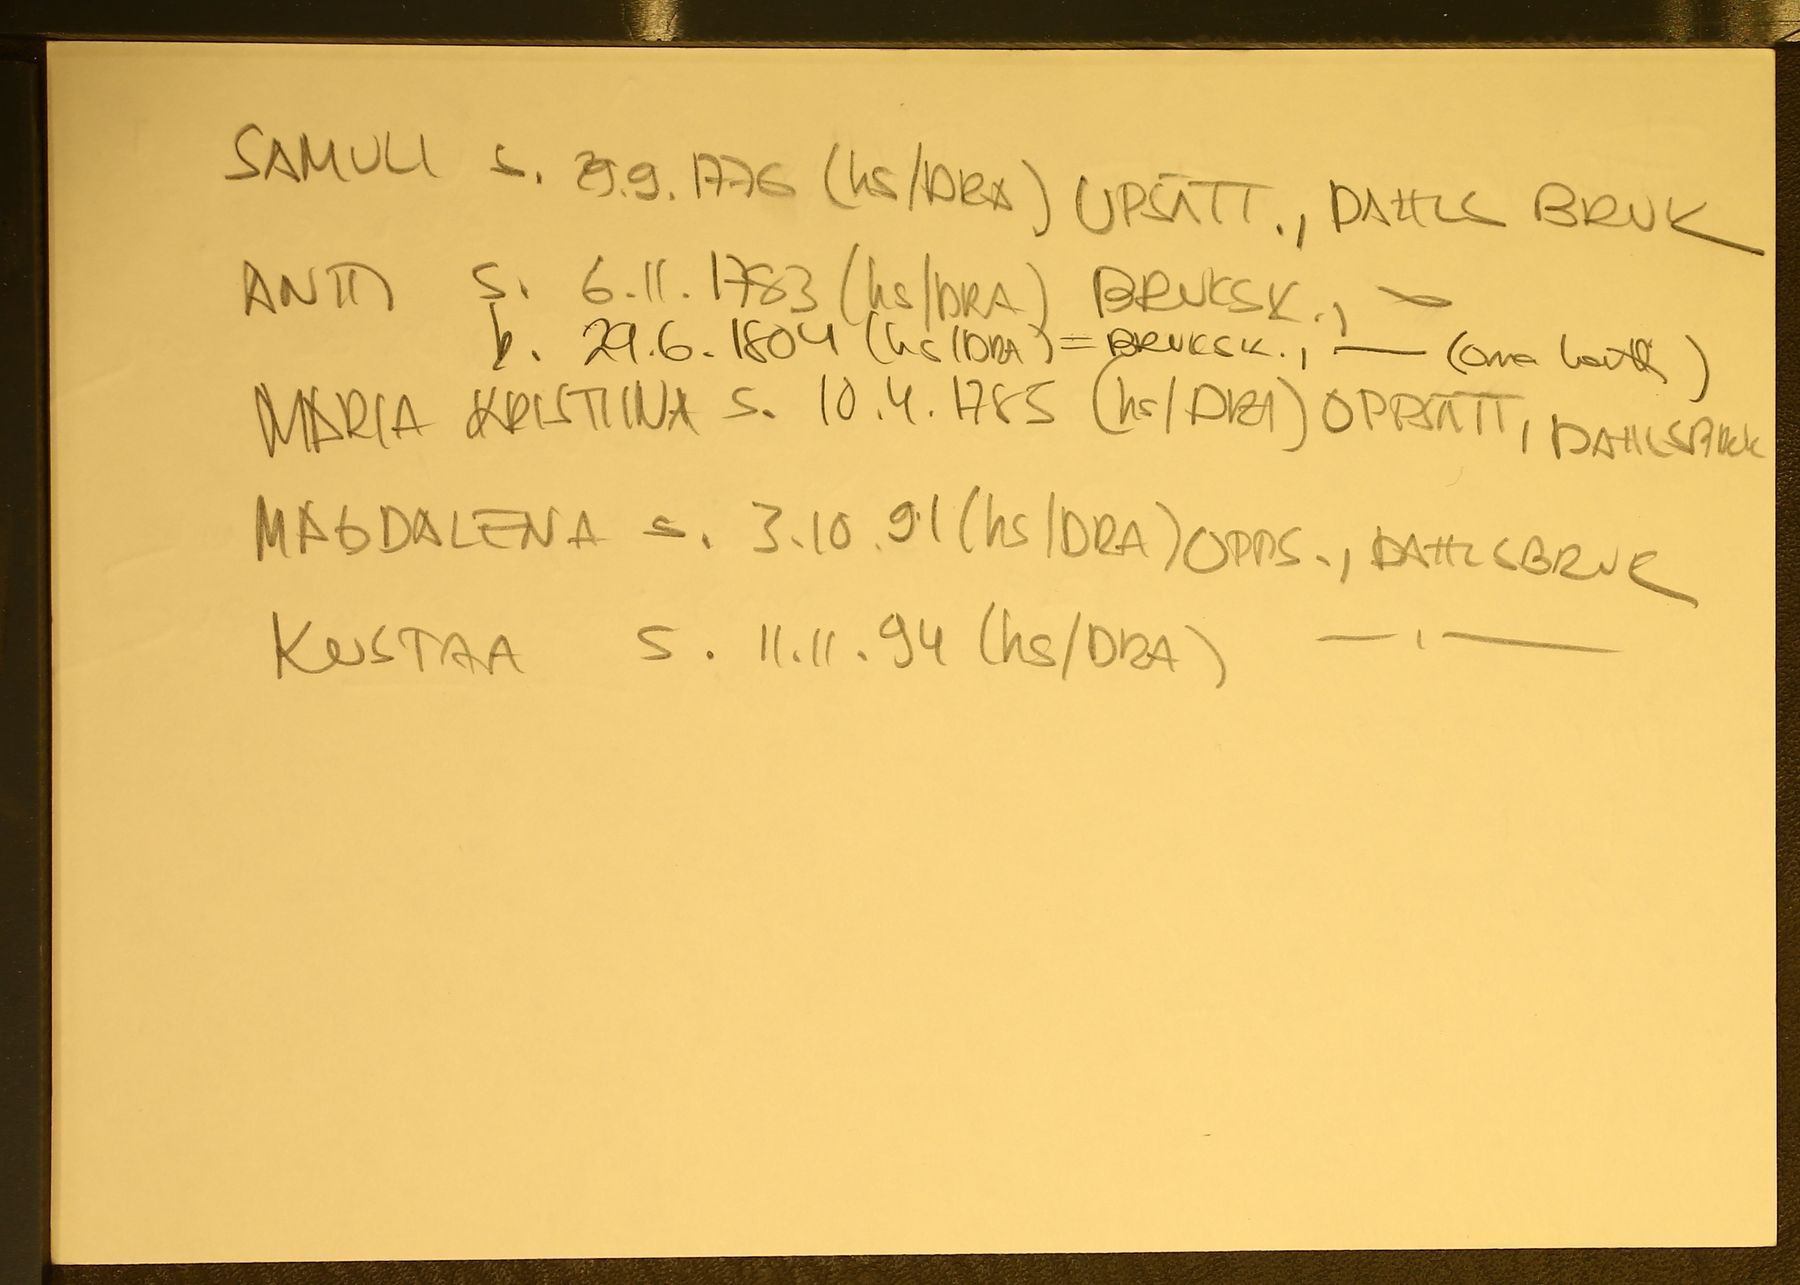 SAMULI s. 29.9.1776 (hs/DRA) UPSÄTT., DAHLS BRUK
ANTTI s. 6.11.1783 (hs/DRA) BRUKSK., —
k. 29.6.1804 (hs/DRA) = BRUKSK., — (oma kortti)
MARIA KRISTIINA s. 10.4.1785 (hs/DRA) OPPSÄTT, DAHLSBRUK
MAGDALENA s. 3.10.91 (hs/DRA) OPPS., DAHLSBRUK
KUSTAA s. 11.11.94 (hs/DRA) — , —